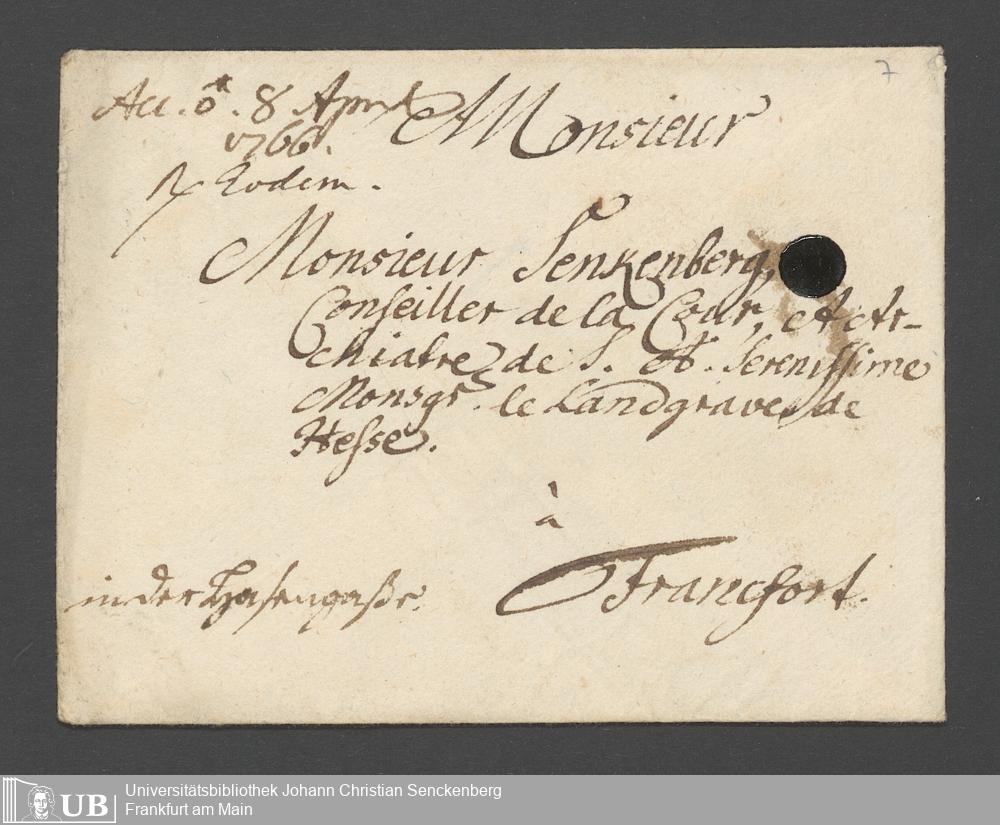 Acc. ♂. 8 April
1766.
Rx Eodem.
7
Monsieur
Monsieur Senkenberg,
Conseiller de la Cour, et Ar-
chiatre de S. A. Serenissime
Monsgr. le Landgrave de
Hesse.
à
Francfort.
in der Hasengaße.
UB
Universitätsbibliothek Johann Christian Senckenberg
Frankfurt am Main